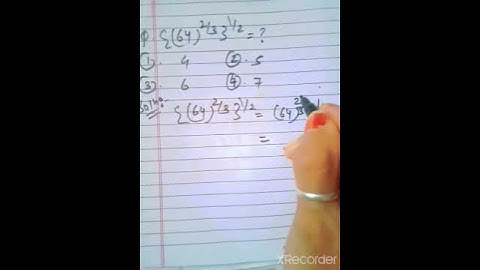 Q {(64)^2/3}^1/2 = ?
① . 4 ② . 5
③ . 6 ④ . 7
Soln: {(64)^2/3}^1/2 = (64)^2/3
=
XRecorder